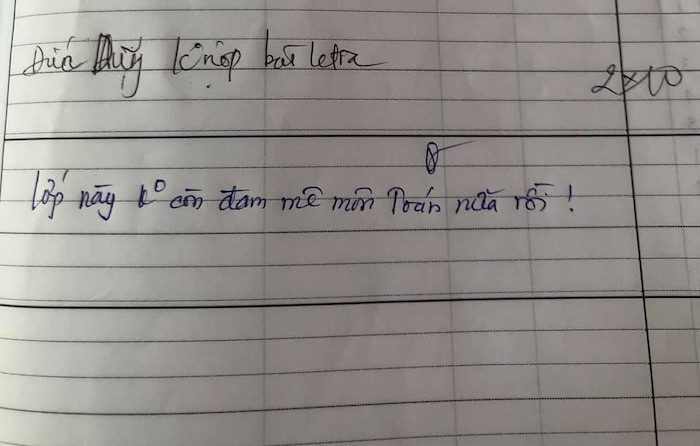 Duy k° nộp bài 2x10
Lớp này k° còn đam mê môn Toán nữa rồi!